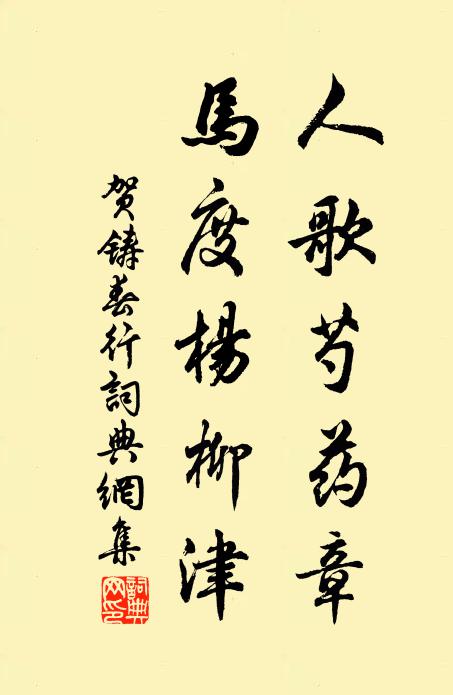 人歌芍药章
馬度楊柳津
贺鑄春行詞典網集
詞典網印